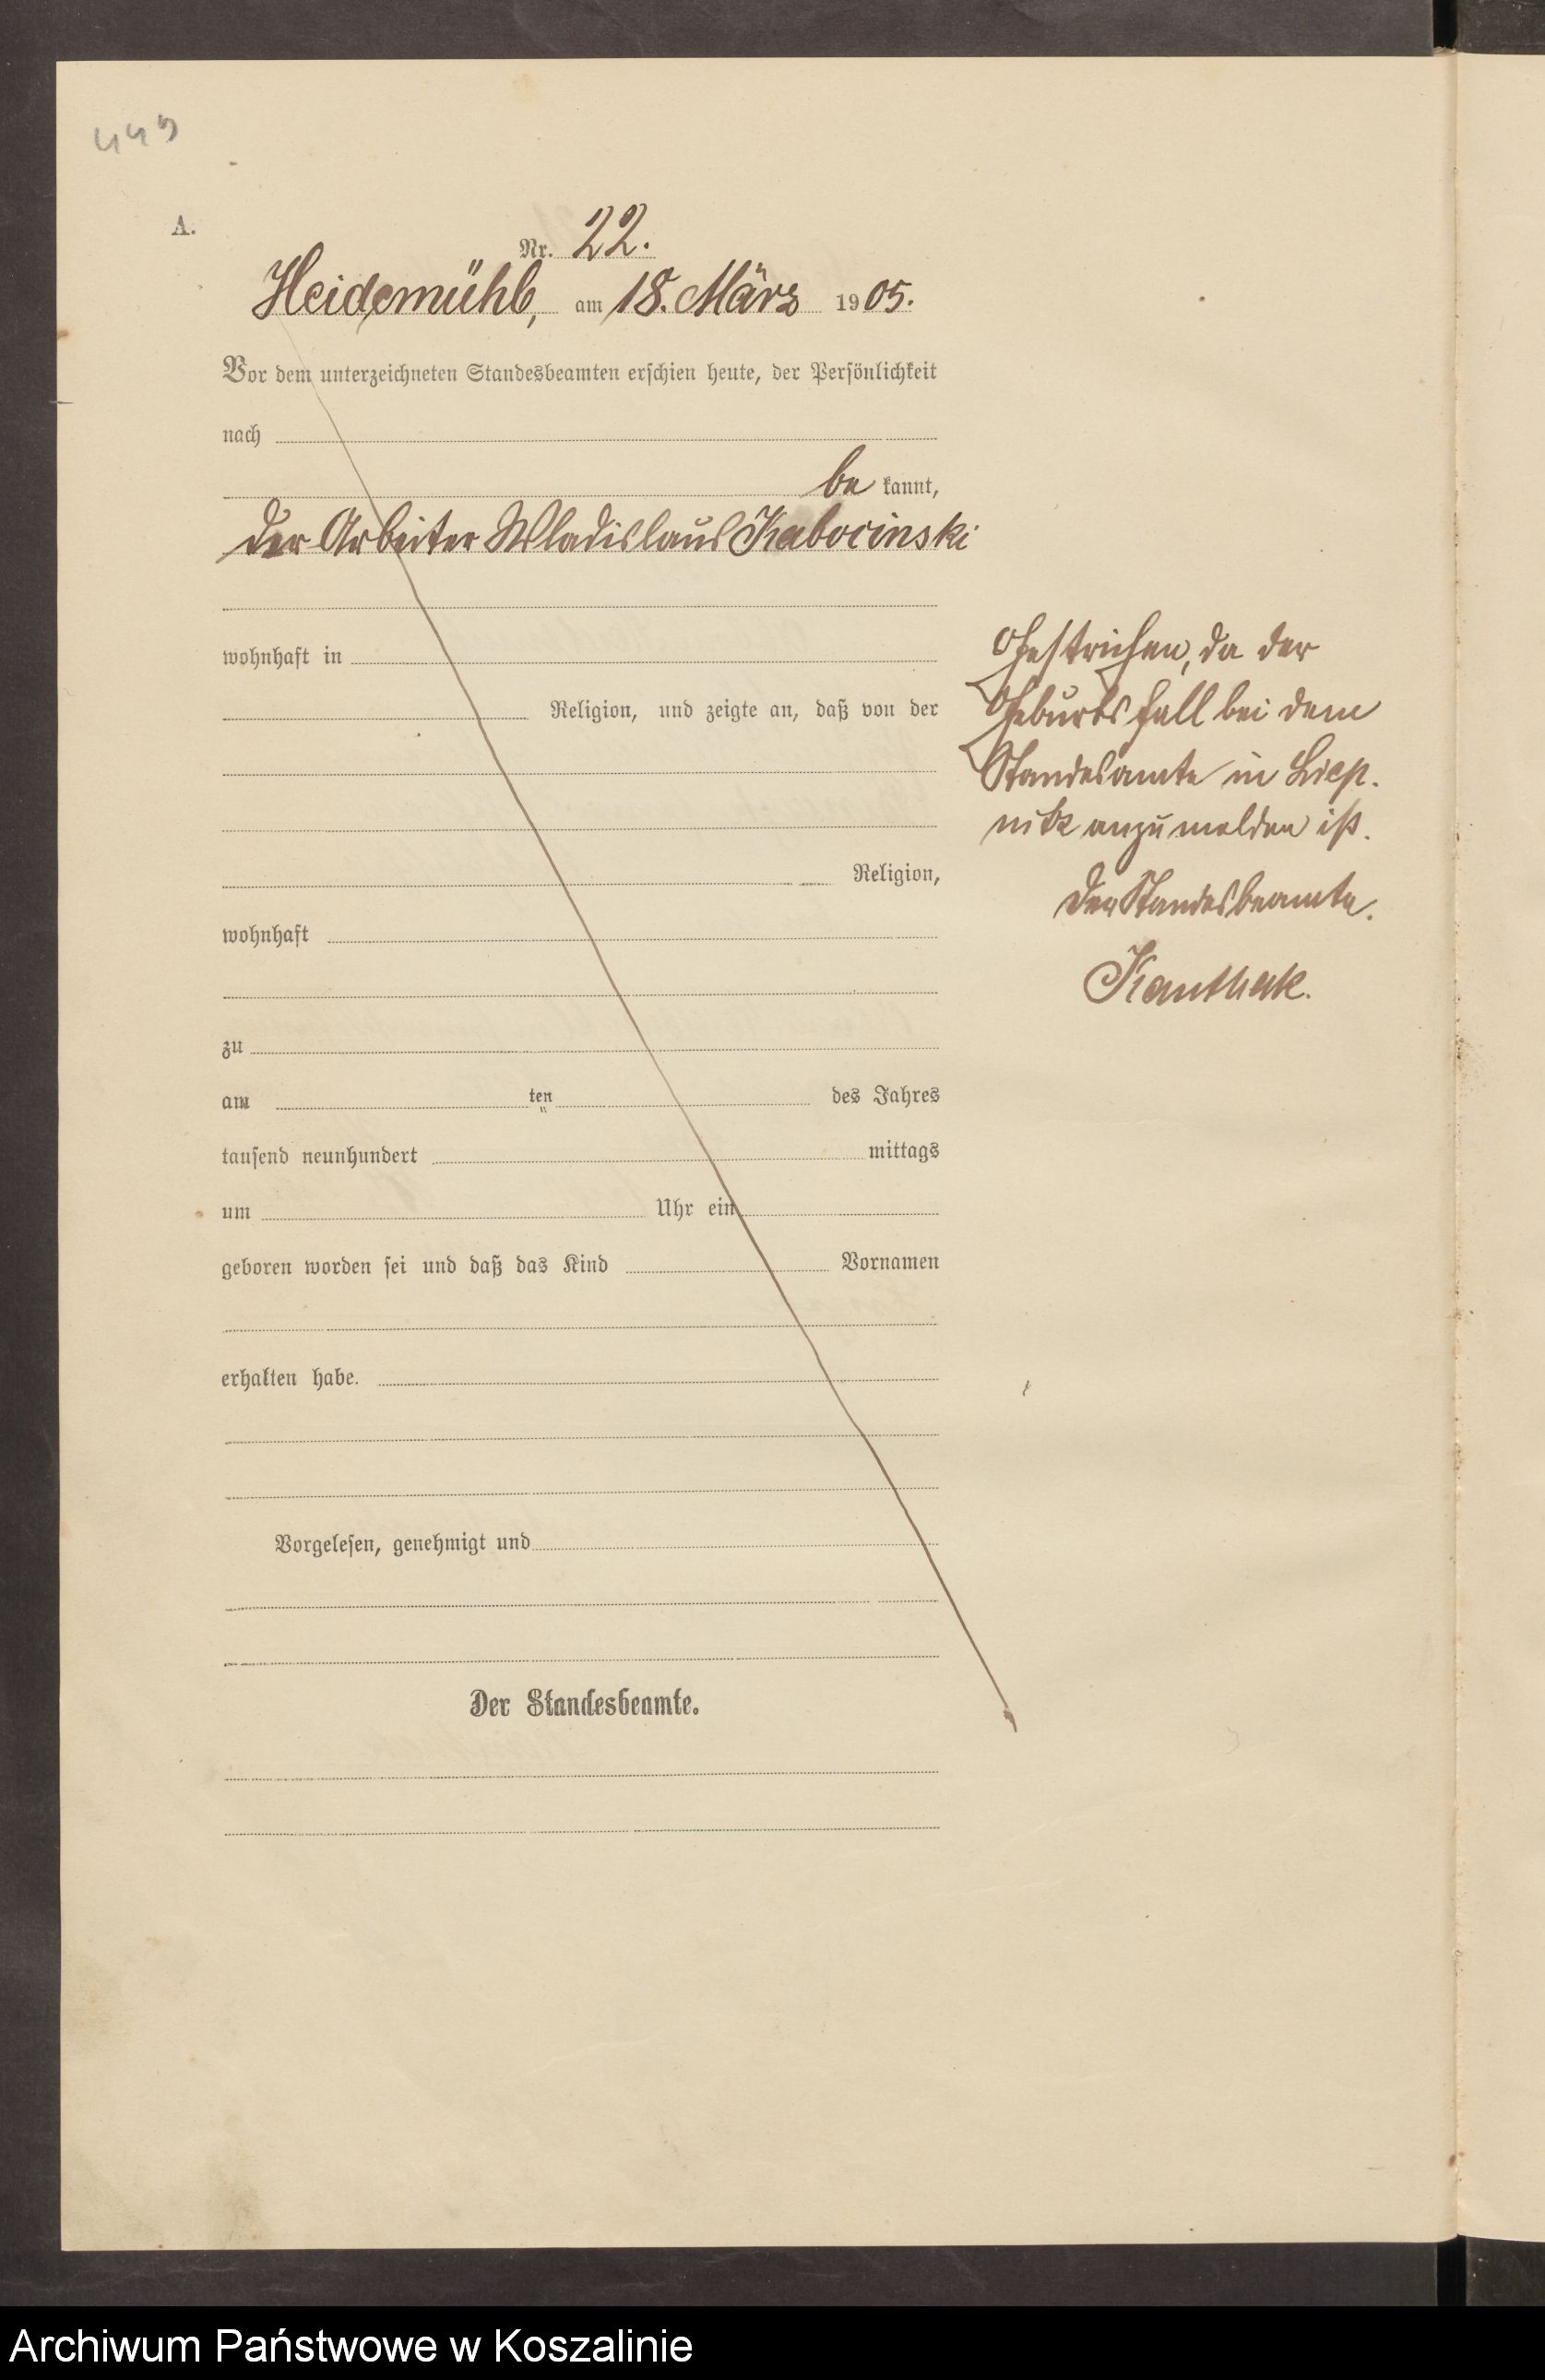 443
A.
Nr. 22.
Heidemühl, am 18. März 1905.
Vor dem unterzeichneten Standesbeamten erschien heute, der Persönlichkeit
nach
be kannt,
der Arbeiter Wladislaus Kabocinski
wohnhaft in
Religion, und zeigte an, daß von der
Religion,
wohnhaft
zu
am ten des Jahres
tausend neunhundert mittags
um Uhr ein
geboren worden sei und daß das Kind Vornamen
erhalten habe.
Vorgelesen, genehmigt und
Der Standesbeamte.
Gestrichen, da der
Geburtsfall bei dem
Standesamte in Liep-
nitz anzumelden ist.
Der Standesbeamte.
Kanthak.
Archiwum Państwowe w Koszalinie